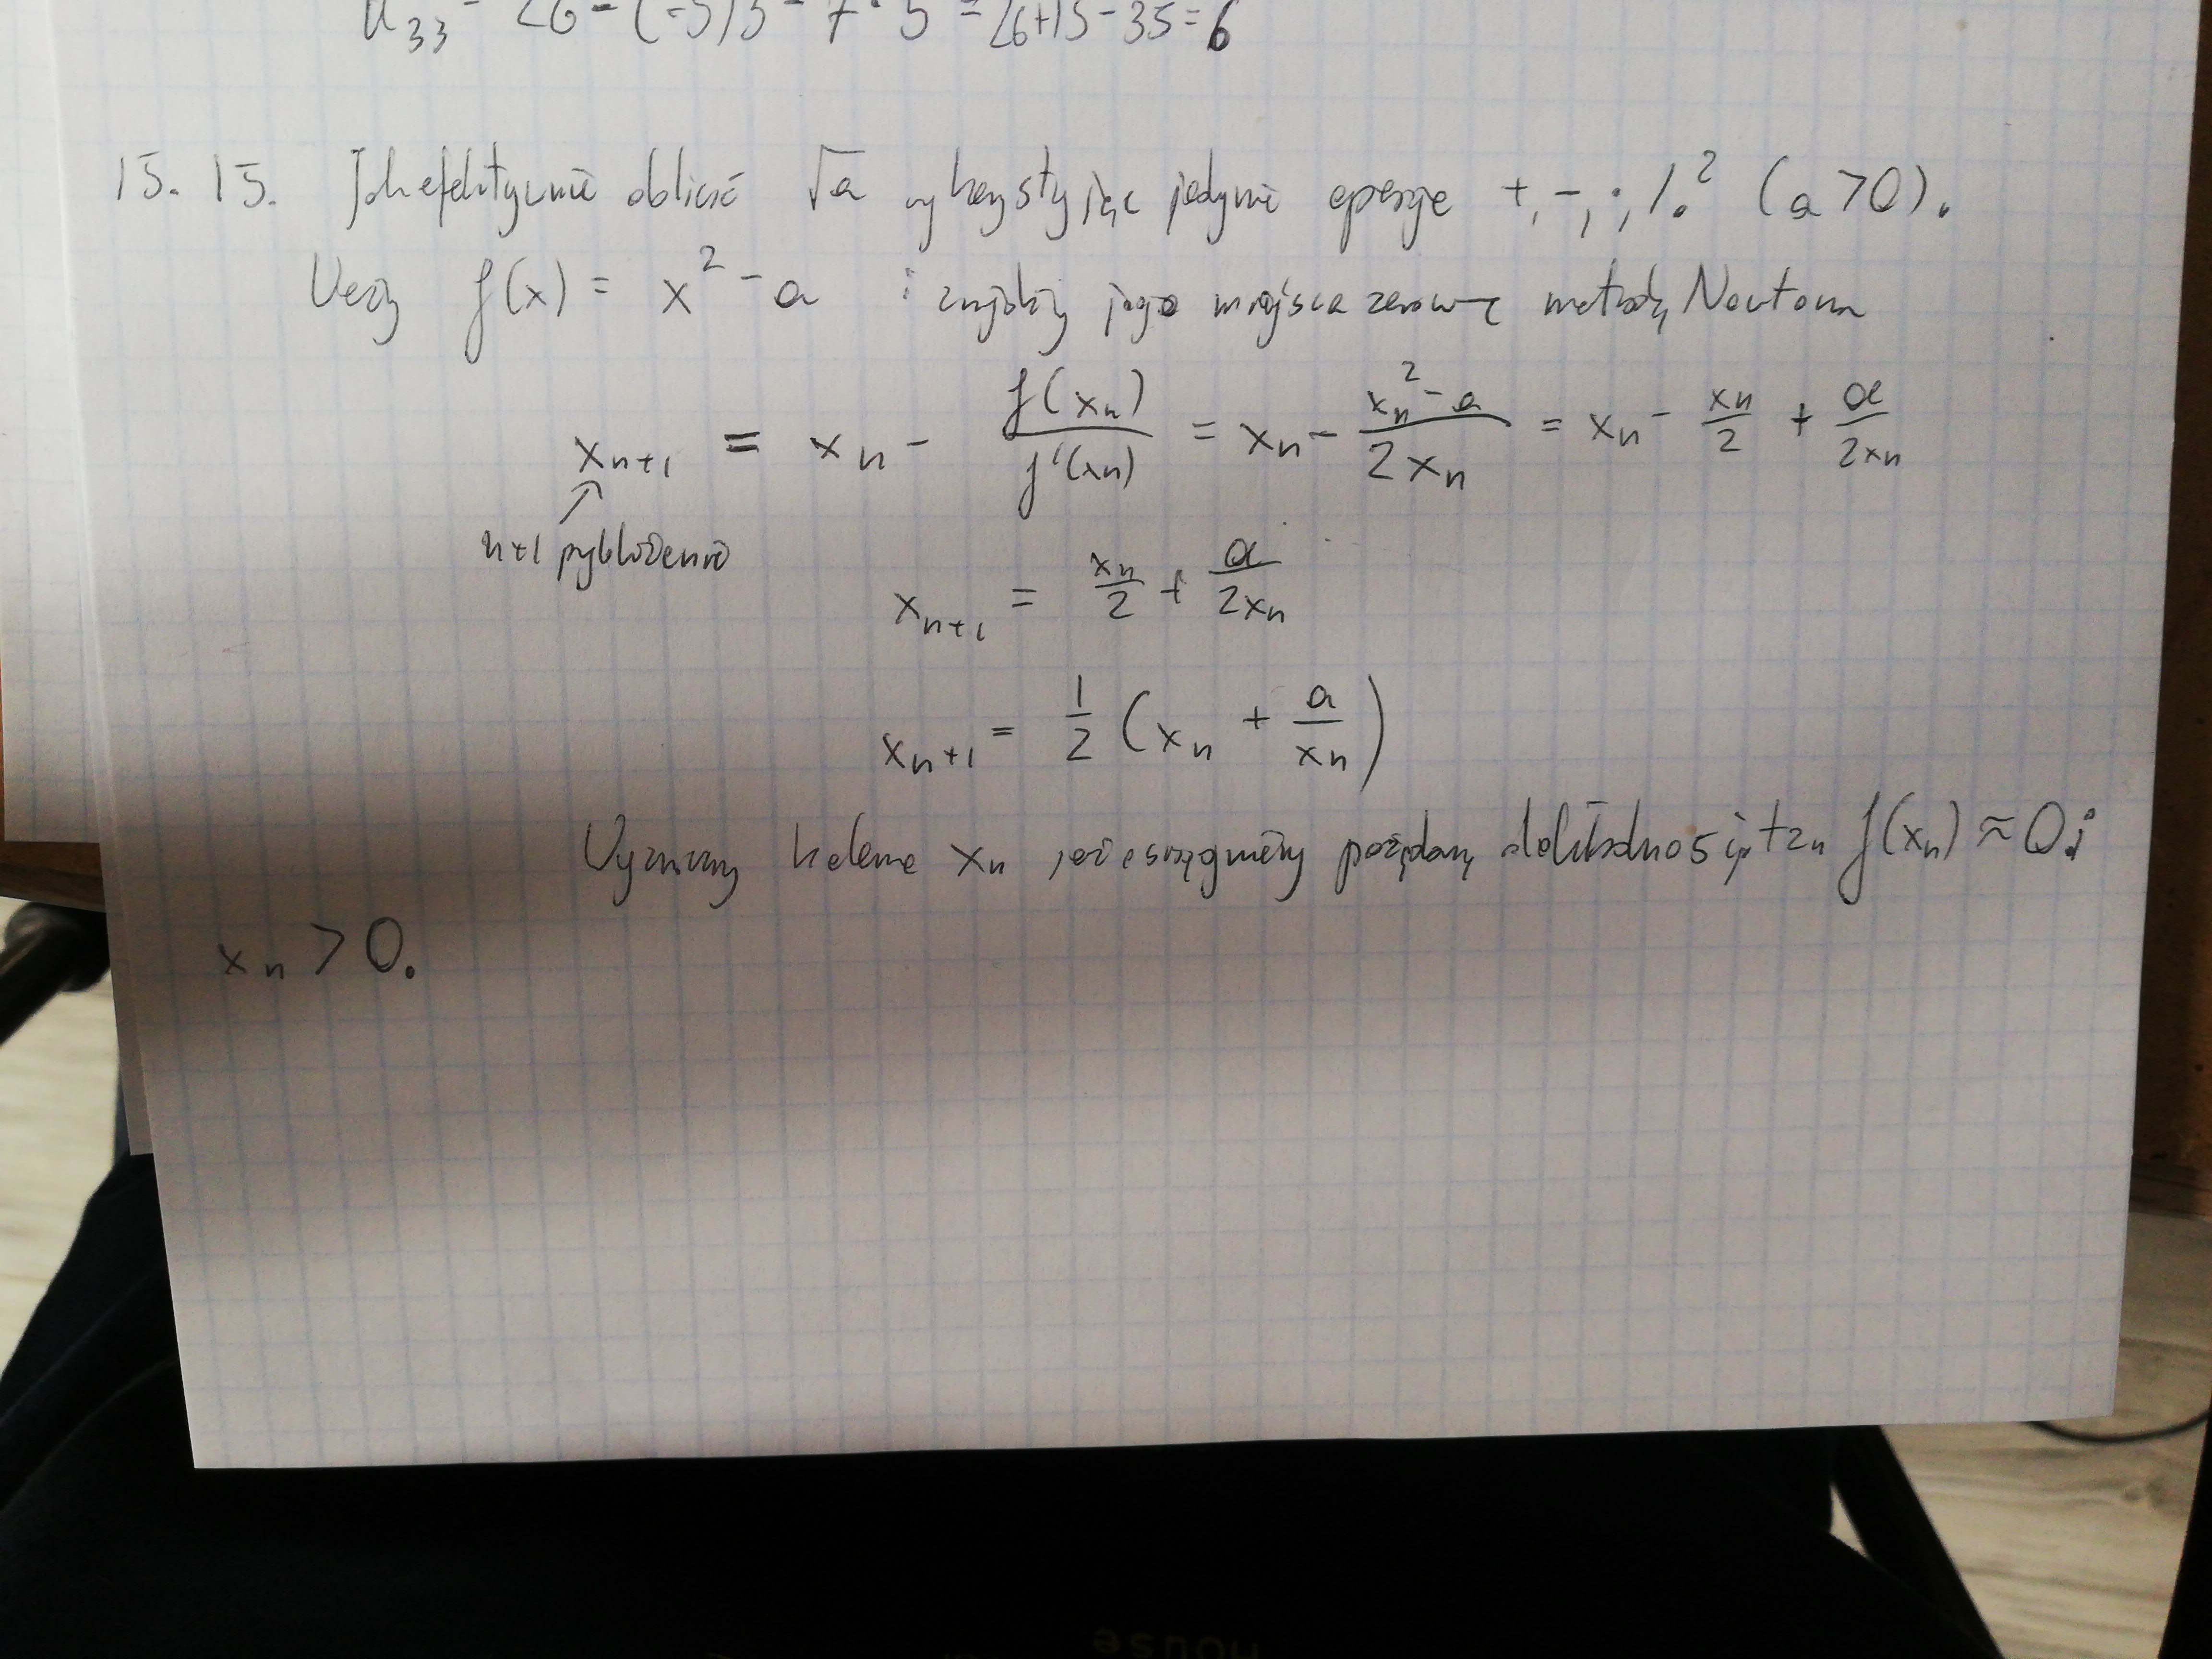 u₃₃ = 26 - (-5)3 - 7 · 5 = 26+15-35=6
15. 15. Jak efektywnie obliczć √a wykorzystując jedynie operacje +, -, ·, /. ? (a>0).
Weźmy f(x) = x² - a i znajdźmy jego miejsca zerowe metodą Newtona
xₙ₊₁ = xₙ - f(xₙ)/f'(xₙ) = xₙ - (xₙ² - a)/(2xₙ) = xₙ - xₙ/2 + a/(2xₙ)
n+1 przybliżenie
xₙ₊₁ = xₙ/2 + a/(2xₙ)
xₙ₊₁ = 1/2 (xₙ + a/xₙ)
Wyznaczmy kolejne xₙ aż osiągniemy pożądaną dokładność, tzn f(xₙ) ≈ 0 i
xₙ > 0.
nouse